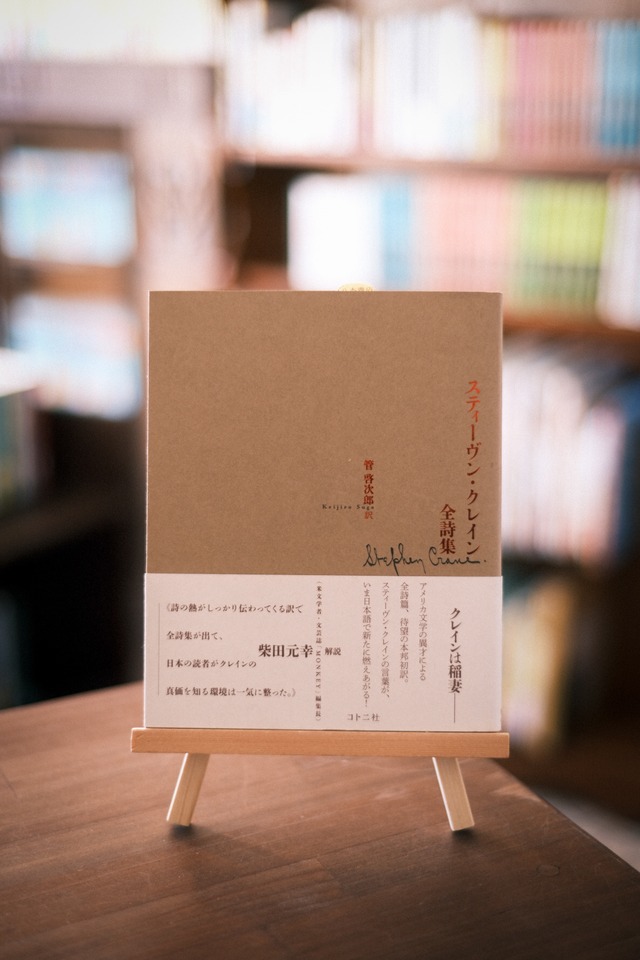 スティーヴン・クレイン
全詩集
管 啓次郎 訳
Keijiro Suga
Stephen Crane.
クレインは稲妻——
アメリカ文学の異才による
全詩篇、待望の本邦初訳。
スティーヴン・クレインの言葉が、
いま日本語で新たに燃えあがる!
柴田元幸 解説
(米文学者・文芸誌「MONKEY」編集長)
《詩の熱がしっかり伝わってくる訳で
全詩集が出て、
日本の読者がクレインの
真価を知る環境は一気に整った。》
コトニ社